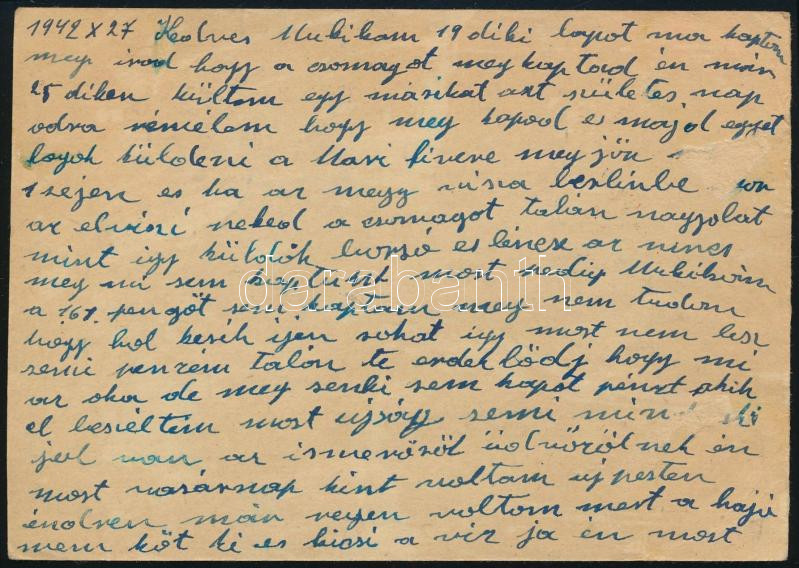 1942 X 27 Kedves Mukikam 19 diki lapot ma kaptam
meg irod hogy a csomagot megkaptad én már
25 diken kültem egy másikat azt születes nap
odra rémélem hogy meg kapod es majd egyet
fogok küldeni a Mari fivere meg jön
1 sejen es ha az megy visza berlinbe
az elviszi neked a csomagot talán nagyobat
mint igy küldök borsó es lencse az nincs
meg mi sem kaptunk most pedig Mukikám
a 161. pengőt sem kaptam meg nem tudom
hogy hol kesik ijen sokat igy most nem lesz
semi penzem talán te erdek lödj hogy mi
az oka de meg senki sem kapot penzt akik
el beséltem most ujság semi min ki
jol van az ismerősöl üdvözölnek én
most vasárnap kint voltam ujpesten
endren már regen voltam mert a hajó
nem köt ki es kicsi a viz ja én most
darabanth